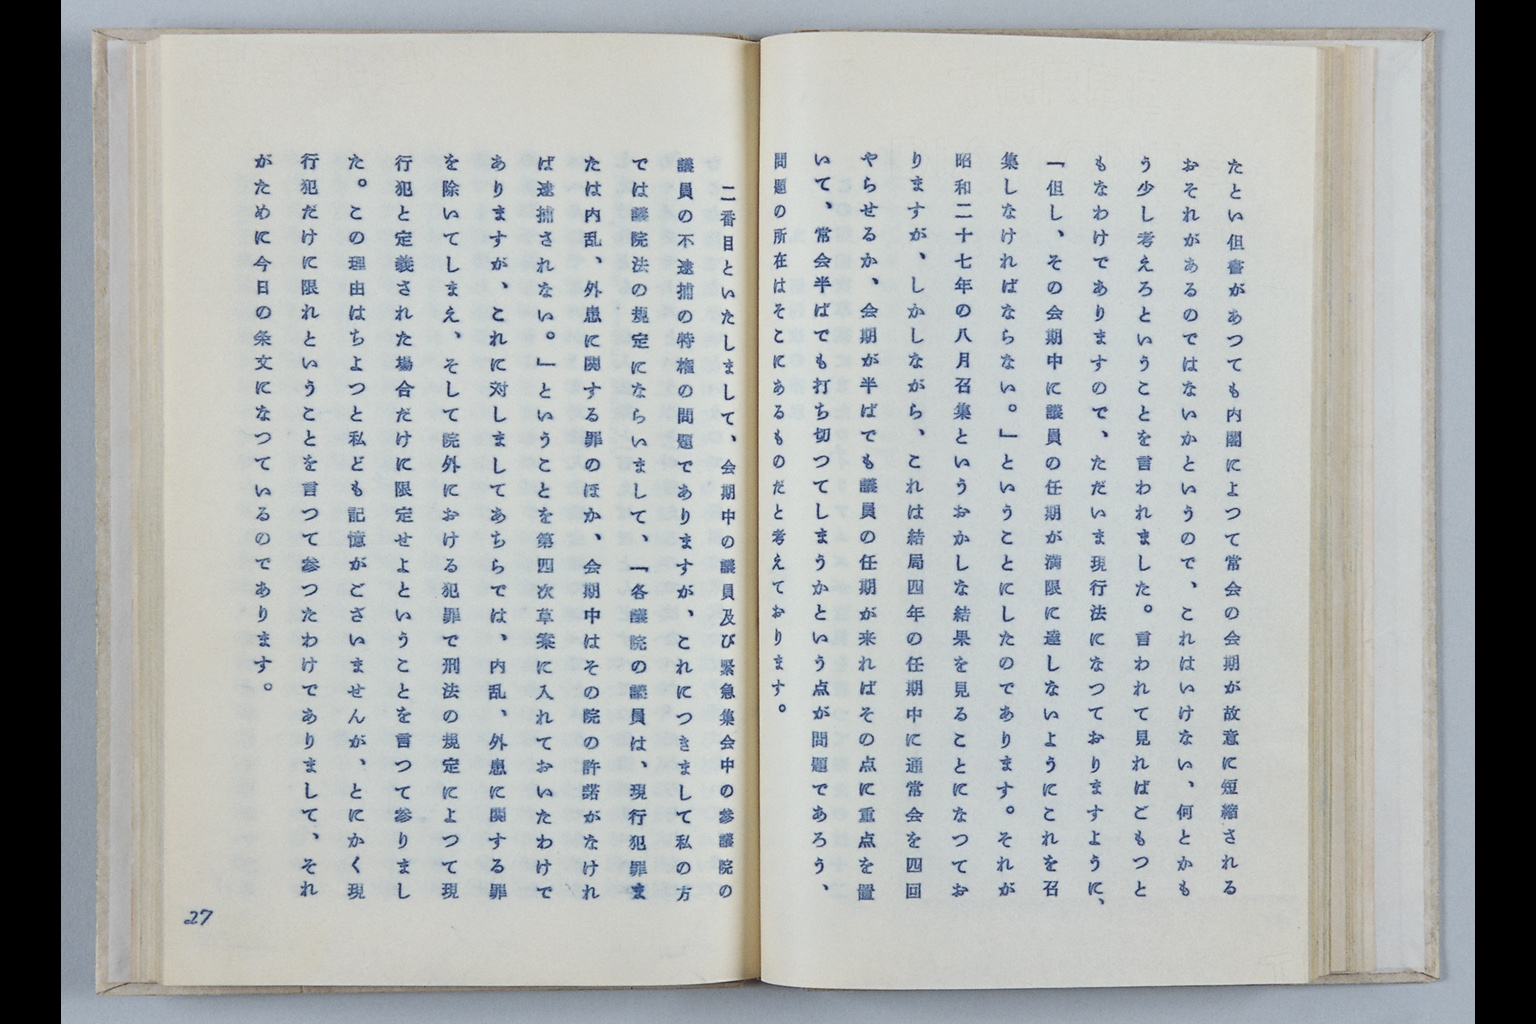 たとい但書があつても内閣によつて常会の会期が故意に短縮される
おそれがあるのではないかというので、これはいけない、何とかも
う少し考えろということを言われました。言われて見ればごもつと
もなわけでありますので、ただいま現行法になつておりますように、
「但し、その会期中に議員の任期が満限に達しないようにこれを召
集しなければならない。」ということにしたのであります。それが
昭和二十七年の八月召集というおかしな結果を見ることになつてお
りますが、しかしながら、これは結局四年の任期中に通常会を四回
やらせるか、会期が半ばでも議員の任期が来ればその点に重点を置
いて、常会半ばでも打ち切つてしまうかという点が問題であろう、
問題の所在はそこにあるものだと考えております。
二番目といたしまして、会期中の議員及び緊急集会中の参議院の
議員の不逮捕の特権の問題でありますが、これにつきまして私の方
では議院法の規定にならいまして、「各議院の議員は、現行犯罪ま
たは内乱、外患に関する罪のほか、会期中はその院の許諾がなけれ
ば逮捕されない。」ということを第四次草案に入れておいたわけで
ありますが、これに対しましてあちらでは、内乱、外患に関する罪
を除いてしまえ、そして院外における犯罪で刑法の規定によつて現
行犯と定義された場合だけに限定せよということを言つて参りまし
た。この理由はちよつと私ども記憶がございませんが、とにかく現
行犯だけに限れということを言つて参つたわけでありまして、それ
がために今日の条文になつているのであります。
27